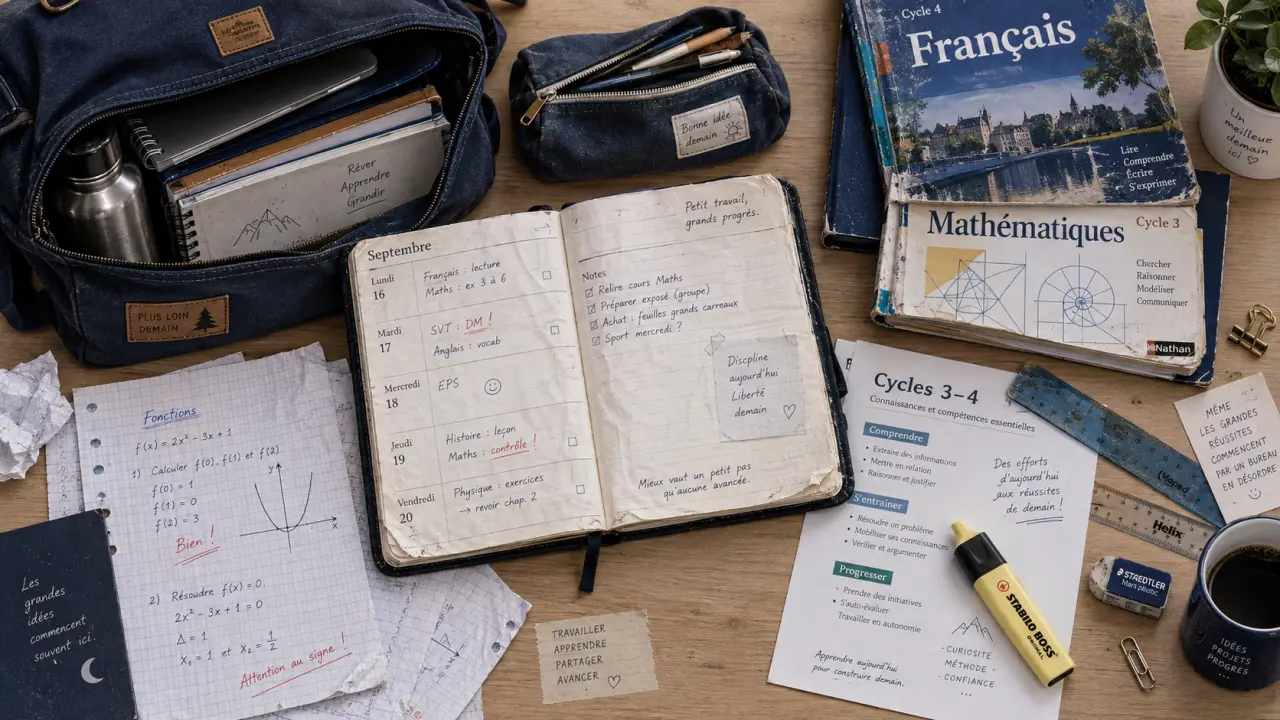 PLUS LOIN
DEMAIN
Rêver
Apprendre
Grandir
Bonne idée
demain
Cycle 4
Français
Lire
Comprendre
Écrire
S'exprimer
Mathématiques
Cycle 3
Chercher
Raisonner
Modéliser
Communiquer
Nathan
Un
meilleure
demain
ici ♡
Septembre
Lundi
16
Français : lecture
Maths : ex 3 à 6
Mardi
17
SVT : DM !
Anglais : vocab
Mercredi
18
EPS
Jeudi
19
Histoire : leçon
Maths : contrôle !
Vendredi
20
Physique : exercices
→ revoir chap. 2
Petit travail,
grands progrés.
Notes
☑ Relire cours Maths
☑ Préparer exposé (groupe)
☑ Achat : feuilles grands carreaux
☑ Sport mercredi ?
Discipline
aujourd'hui
Liberté
demain ♡
Mieux vaut un petit pas
qu'aucune avancée.
Fonctions
f(x) = 2x² - 3x + 1
1) Calculer f(0), f(1) et f(2)
f(0) = 1
f(1) = 0
f(2) = 3
Bien !
x
2) Résoudre f(x) = 0.
2x² - 3x + 1 = 0
Δ = 1
x₁ = 1 et x₂ = 1/2
Attention au signe !
Les
grandes
idées
commencent
souvent ici.
TRAVAILLER
APPRENDRE
PARTAGER
AVANCER ♡
Cycles 3–4
Connaissances et compétences essentielles
Comprendre
• Extraire des informations
• Mettre en relation
• Raisonner et justifier
Des efforts
d'aujourd'hui
aux réussites
de demain !
S'entraîner
• Résoudre un problème
• Mobiliser ses connaissances
• Vérifier et argumenter
Progresser
• Prendre des initiatives
• S'auto-évaluer
Travailler en autonomie
- CURIOSITE
MÉTHODE -
- CONFIANCE
...
Apprendre aujourd'hui
pour construire demain.
STABILO BOSS
ORIGINAL
Maped
Helix
STAEDTLER
Mars plastic
MÊME
LES GRANDES
RÉUSSITES
COMMENCENT
PAR UN BUREAU
EN DÉSORDRE
IDÉES
PROJETS
PROGRÈS
...